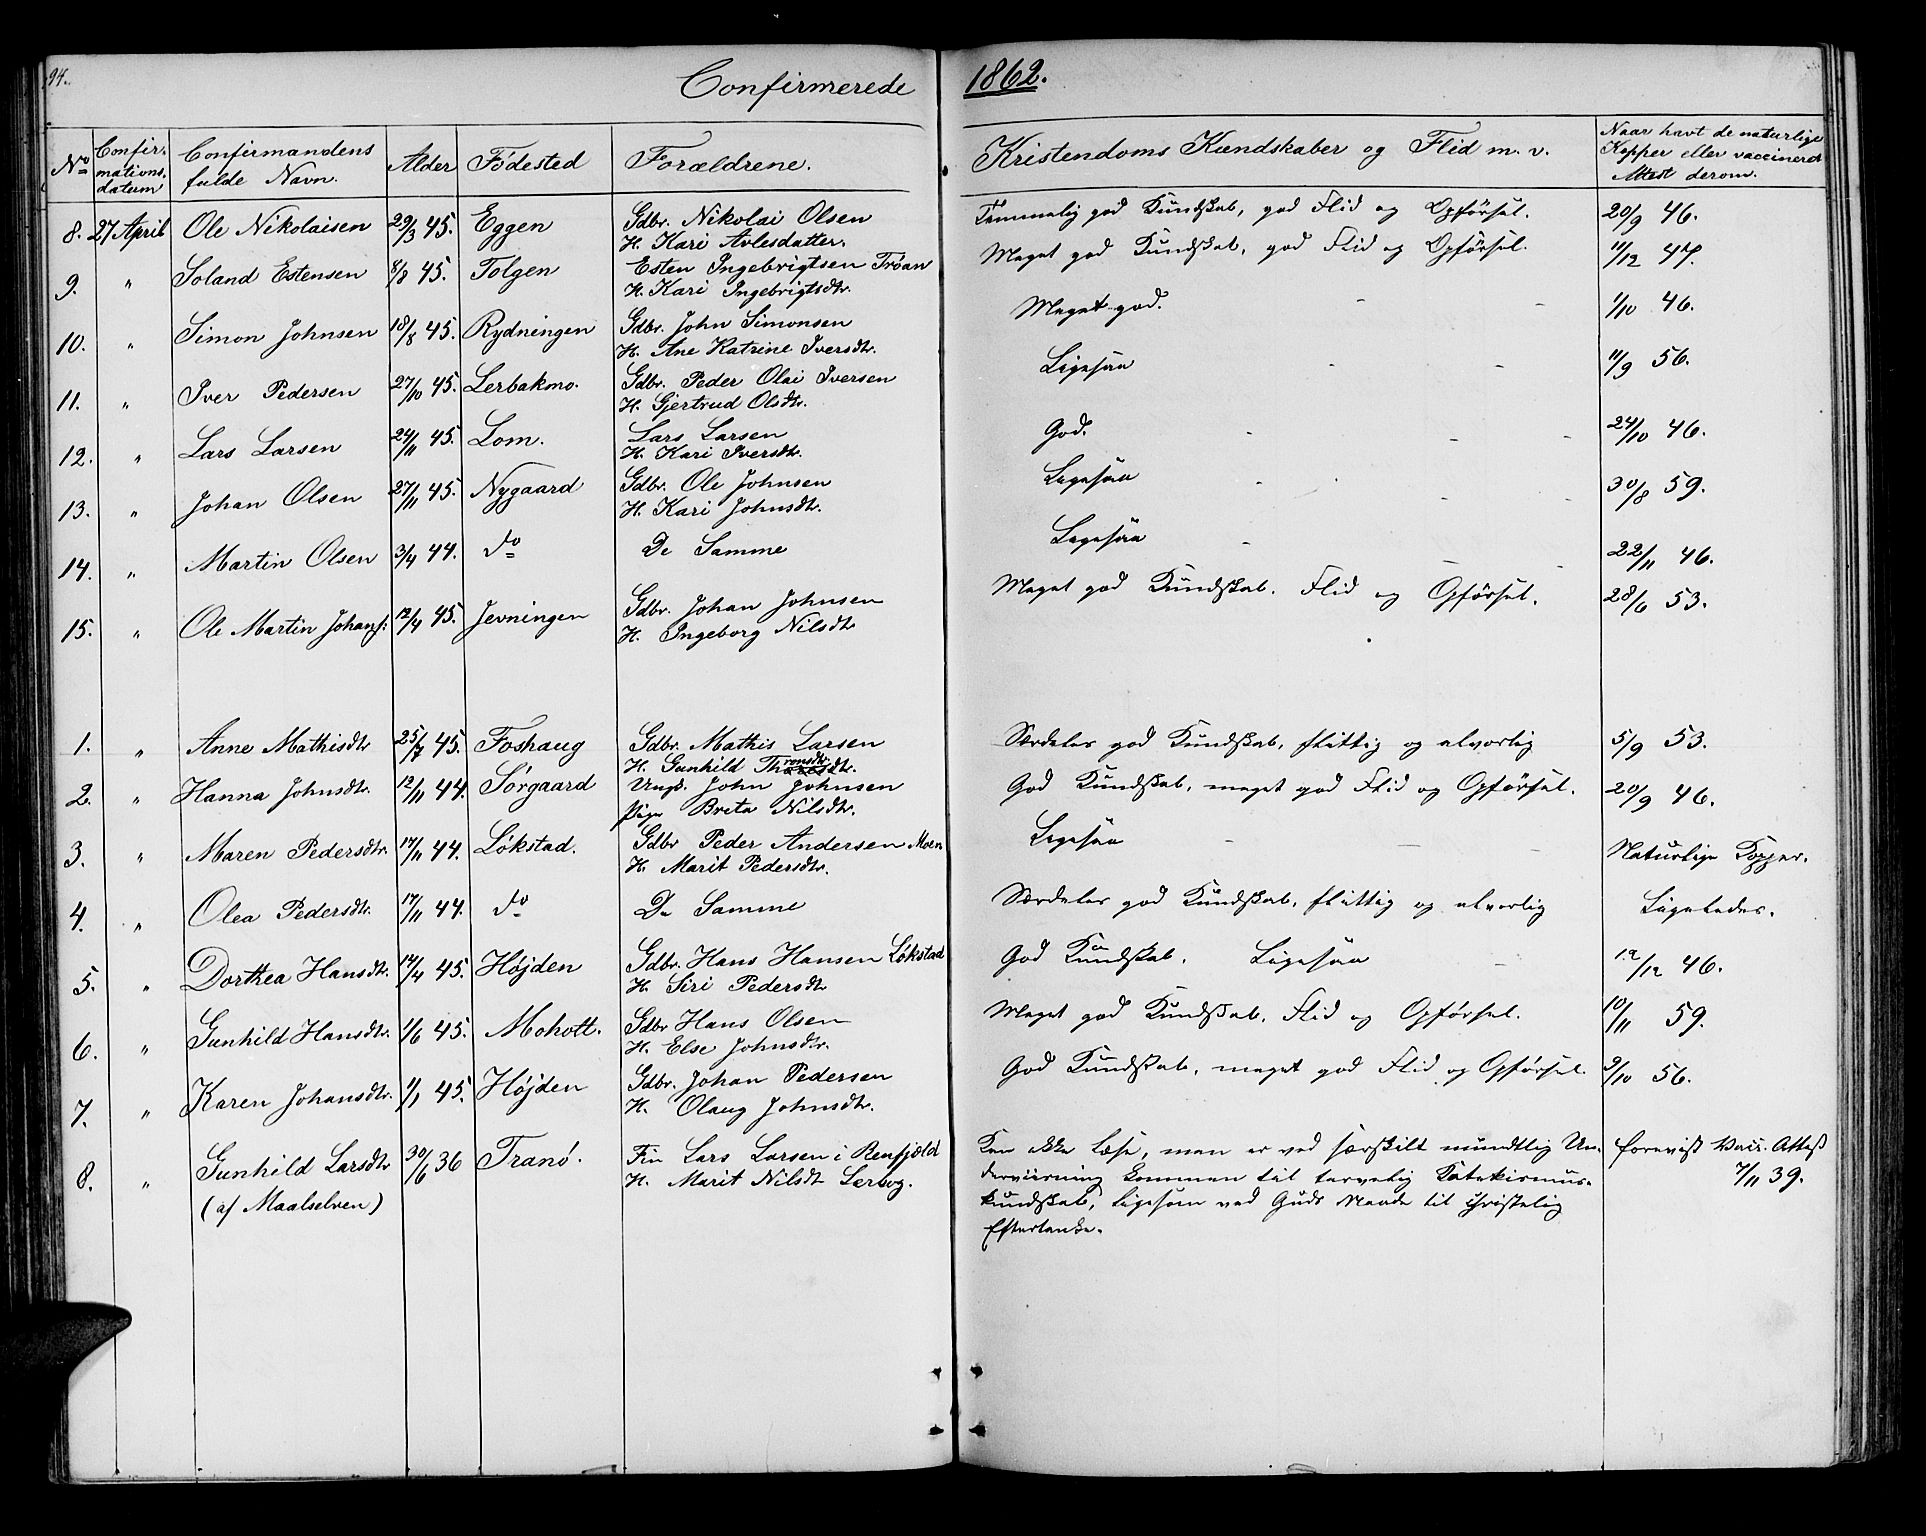 94.
Confirmerede 1862.
No Confirmations-datum Confirmandens fulde Navn. Alder Födested Forældrene. Kristendoms Kundskaber og Flid m. v. Naar havt de naturlige Kopper eller vaccinered Attest derom.
8. 27 April Ole Nikolaisen 29/3 45. Eggen Gdbr. Nikolai Olsen Temmelig god Kundskab, god Flid og Opförsel. 20/9 46.
H. Kari Avlesdatter.
9. " Soland Estensen 8/8 45. Tolgen Esten Ingebrigtsen Tröan Meget god Kundskab, god Flid og Opförsel. 11/12 47.
H. Kari Ingebrigtsdtr.
10. " Simon Johnsen 18/8 45. Rydningen Gdbr. John Simonsen Meget god. - - 1/10 46.
H. Ane Katrine Iversdtr.
11. " Iver Pedersen 27/10 45. Lerbakmo. Gdbr. Peder Olai Iversen Ligesaa - - 11/9 56.
H. Gjertrud Olsdtr.
12. " Lars Larsen 24/11 45. Lom. Lars Larsen God. - - - 24/10 46.
H. Kari Iversdtr.
13. " Johan Olsen 27/11 45. Nygaard Gdbr. Ole Johnsen Ligesaa - - - 30/8 59.
H. Kari Johnsdtr.
14. " Martin Olsen 3/4 44. do De Samme Ligesaa - - - 22/11 46.
15. " Ole Martin Johans: 12/4 45. Jevningen Gdbr. Johan Johnsen Meget god Kundskab. Flid og Opförsel. 28/6 53.
H. Ingeborg Nilsdtr
1. " Anne Mathisdtr 25/7 45. Foshaug Gdbr. Mathis Larsen Særdeles god Kundskab, flittig og alvorlig 5/9 53.
H. Gunhild Thoresdtr. ronsdtr.
2. " Hanna Johnsdtr. 12/11 44. Sörgaard Ungk. John Johnsen God Kundskab, meget god Flid og Opförsel. 20/9 46.
Pige Breta Nilsdtr.
3. " Maren Pedersdtr. 17/11 44. Løkstad. Gdbr Peder Andersen Moen Ligesaa - - - Naturlige Kopper.
H. Marit Pedersdtr.
4. " Olea Pedersdtr. 17/11 44. do De Samme Særdeles god Kundskab, flittig og alvorlig Ligeledes.
5. " Dorthea Hansdtr. 14/4 45. Højden Gdbr. Hans Hansen Løkstad God Kundskab. Ligesaa - 12/12 46.
H. Siri Pedersdtr
6. " Gunhild Hansdtr. 1/6 45. Moholt. Gdbr Hans Olsen Meget god Kundskab, Flid og Opførsel. 10/11 59.
H. Else Johnsdtr.
7. " Karen Johansdtr. 1/1 45. Højden Gdbr. Johan Pedersen God Kundskab, meget god Flid og Opførsel. 9/10 56.
H. Olaug Johnsdtr.
8. " Gunhild Larsdtr 30/6 36 Tranö. Fin Lars Larsen i Renfjeld Kan ikke læse, men er ved særskilt mundtlig Un- forevist Vacc. Attest
(af Maalselven) H. Marit Nilsdt dervisning kommen til tarvelig Katekismus- 7/11 39.
kundskab, ligesom ved Guds Naade til christelig
Eftertanke.